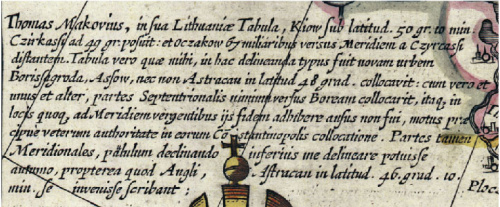 Thomas Makovius, in sua Lithuaniæ Tabula, Kiow sub latitud. 50 gr. 10 min
Czirkassi ad 49 gr. posuit: et Oczakow 67 miliaribus versus Meridiem a Czyrcassi
distantem. Tabula vero quæ mihi, in hac delineanda typus fuit novam urbem
Borissogroda, Assow, nec non Astracan in latitud 48 grad. collocavit: cum vero et
unus et alter, partes Septentrionalis nimium versus Boream collocarit, itaq, in
locis quoq, ad Meridiem vergentibus ijs fidem adhibere ausus non fui, motus præ
cipue veterum authoritate in eorum Constantinopolis collocatione. Partes tamen
Meridionales, paululum declinando inferius me delineare potuisse
autumo, propterea quod Angli, Astracan in latitud. 46. grad. 10.
min. se invenisse scribant:
Ploc